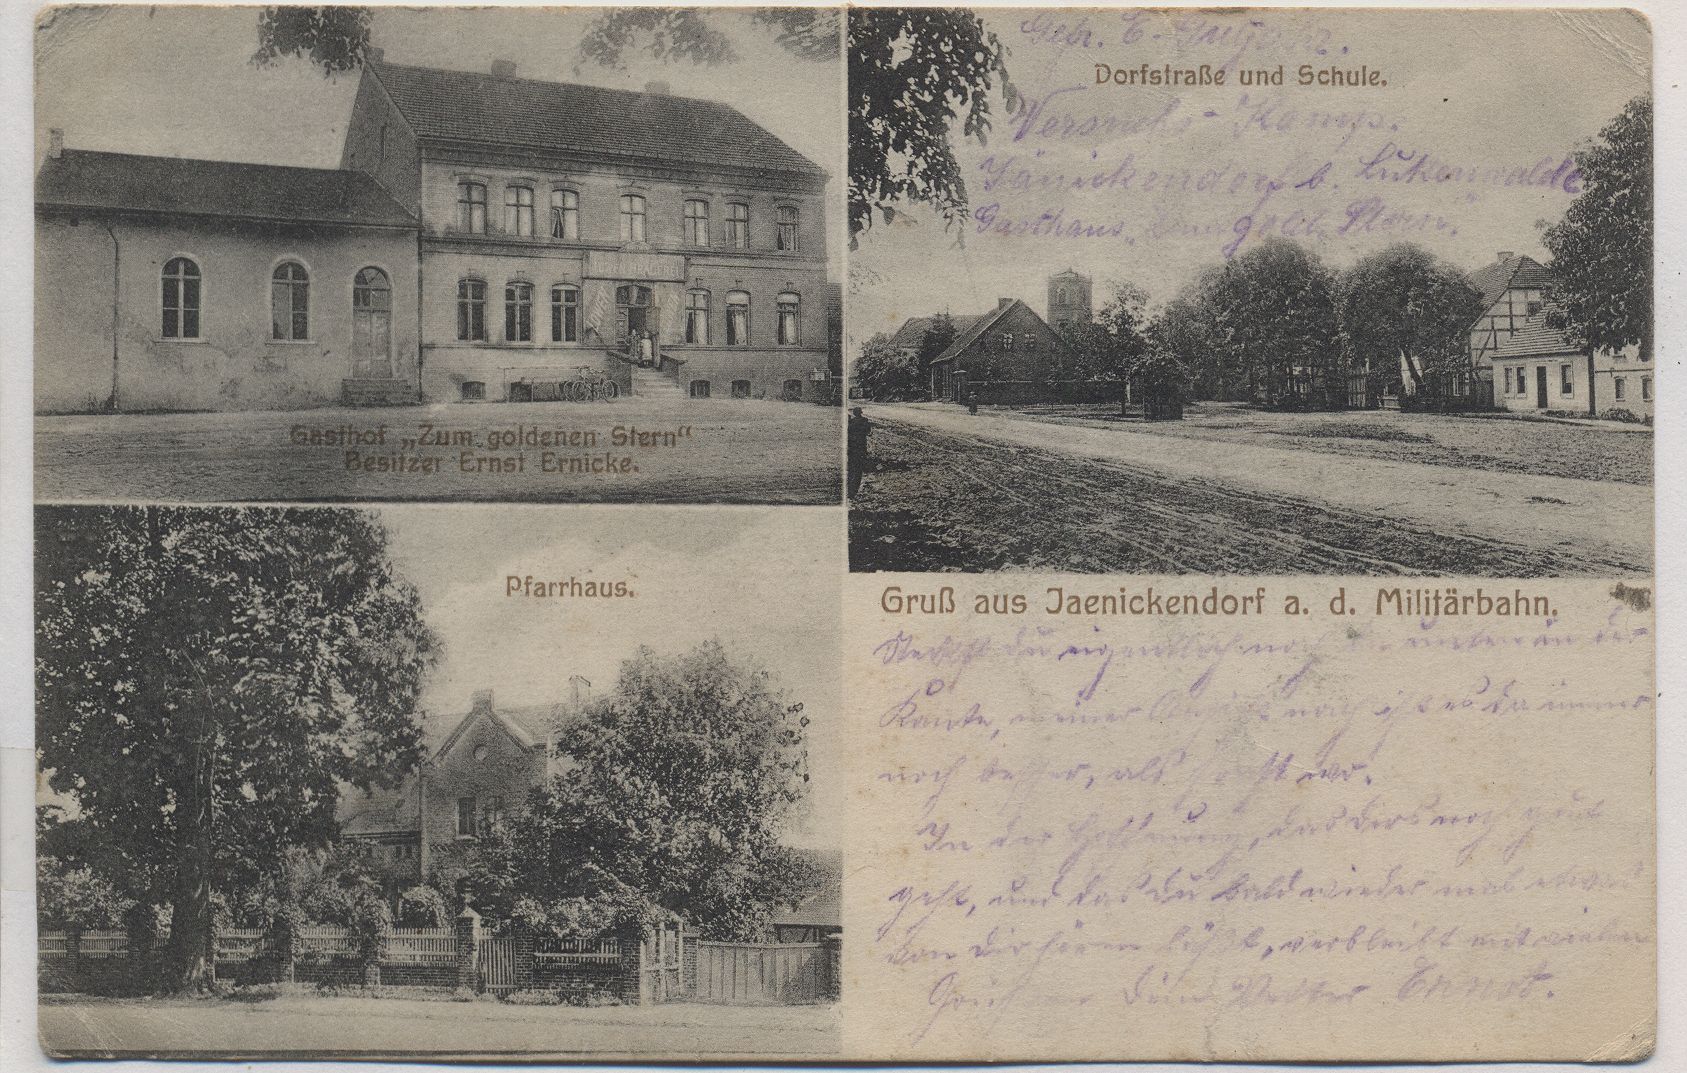 Gasthof „Zum goldenen Stern“
Besitzer Ernst Ernicke.
Gefr. E.
Dorfstraße und Schule.
Versuchs-Komp.
Jänickendorf b. Lukenwalde
Gasthaus „Zum gold. Stern“.
Pfarrhaus.
Gruß aus Jaenickendorf a. d. Militärbahn.
du eigentlich noch an der
Kante, meiner Ansicht nach ist es da immer
noch besser, als sonst wo.
In der Hoffnung, das dirs noch gut
geht, und das du bald wieder mal etwas
von dir hören läßt, verbleibt mit vielen
Grüßen Dein Vetter Ernst.